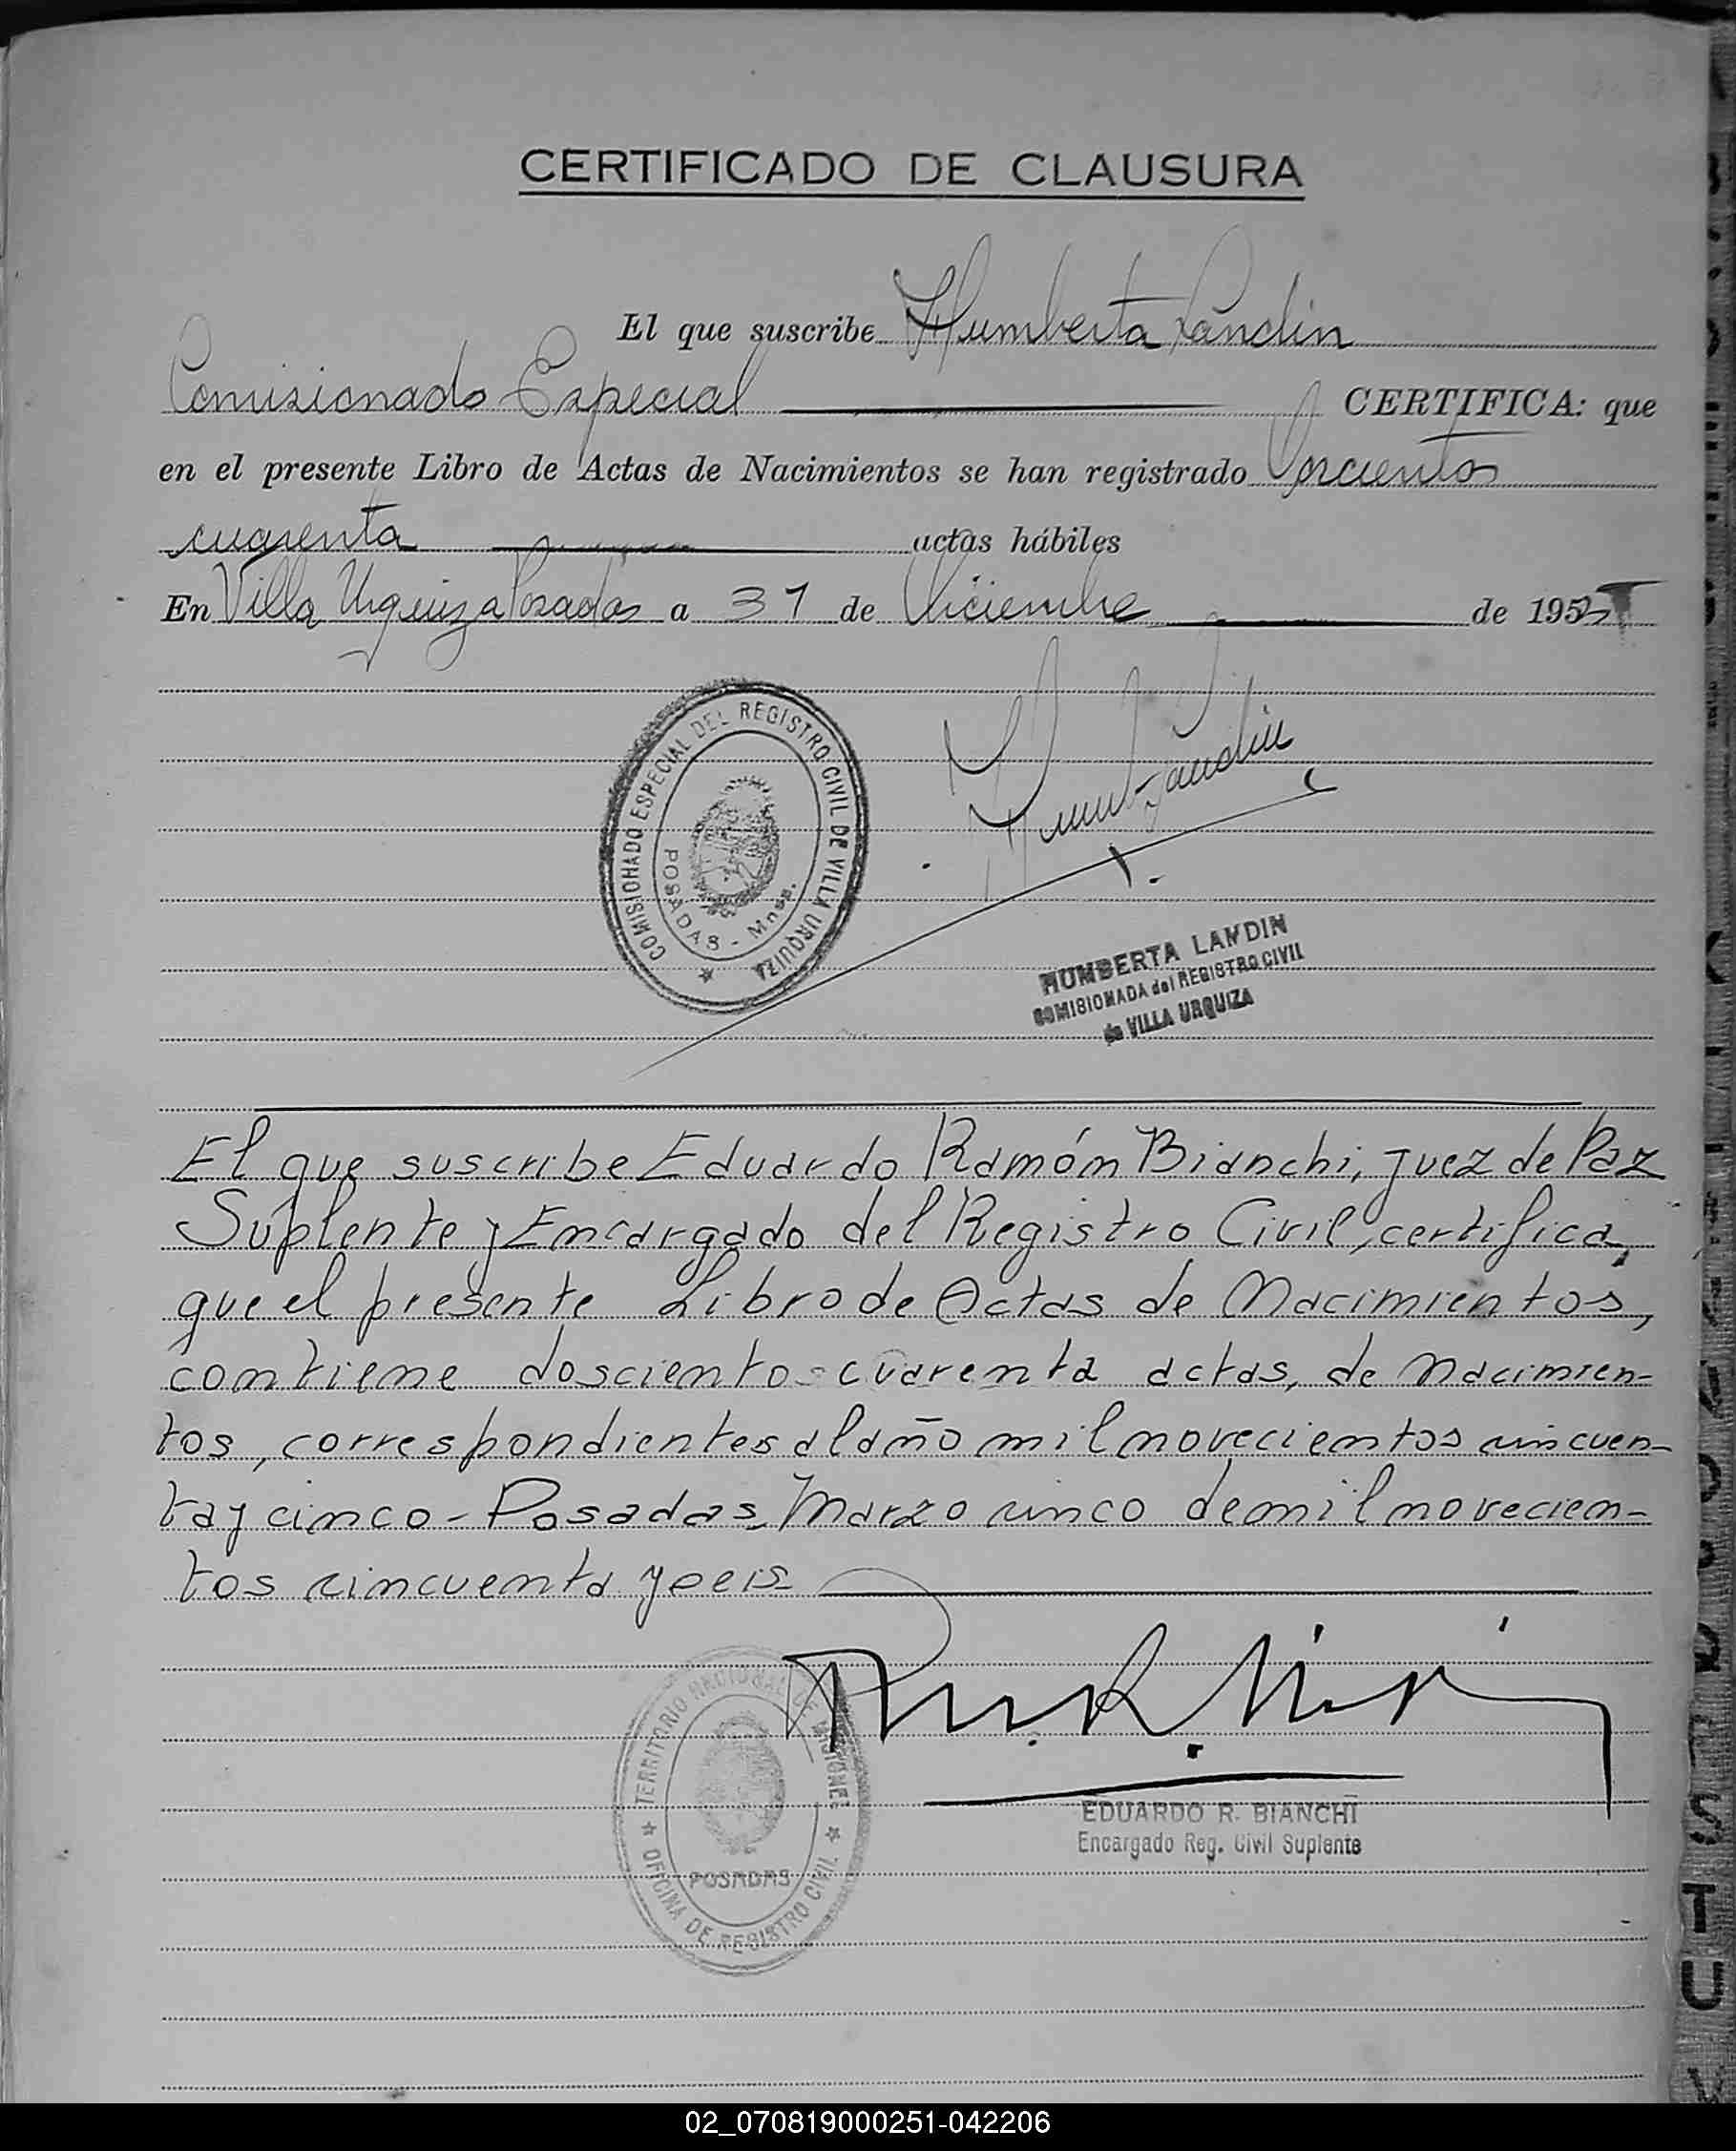 CERTIFICADO DE CLAUSURA
El que suscribe Humberta Landin
Comisionado Especial CERTIFICA: que
en el presente Libro de Actas de Nacimientos se han registrado Doscientos
cuarenta actas hábiles
En Villa Urquiza Posadas a 31 de Diciembre de 1955
COMISIONADO ESPECIAL DEL REGISTRO CIVIL DE VILLA URQUIZA
POSADAS - Mnes.
Humb Landin
HUMBERTA LANDIN
COMISIONADA del REGISTRO CIVIL
de VILLA URQUIZA
El que suscribe Eduardo Ramón Bianchi, Juez de Paz
Suplente y Encargado del Registro Civil, certifica,
que el presente Libro de Actas de Nacimientos,
contiene doscientos cuarenta actas, de nacimien-
tos, correspondientes al año mil novecientos cincuen-
ta y cinco - Posadas, Marzo cinco de mil novecien-
tos cincuenta y seis
TERRITORIO NACIONAL DE MISIONES
POSADAS
OFICINA DE REGISTRO CIVIL
EDUARDO R. BIANCHI
Encargado Reg. Civil Suplente
S
T
U
V
02_070819000251-042206